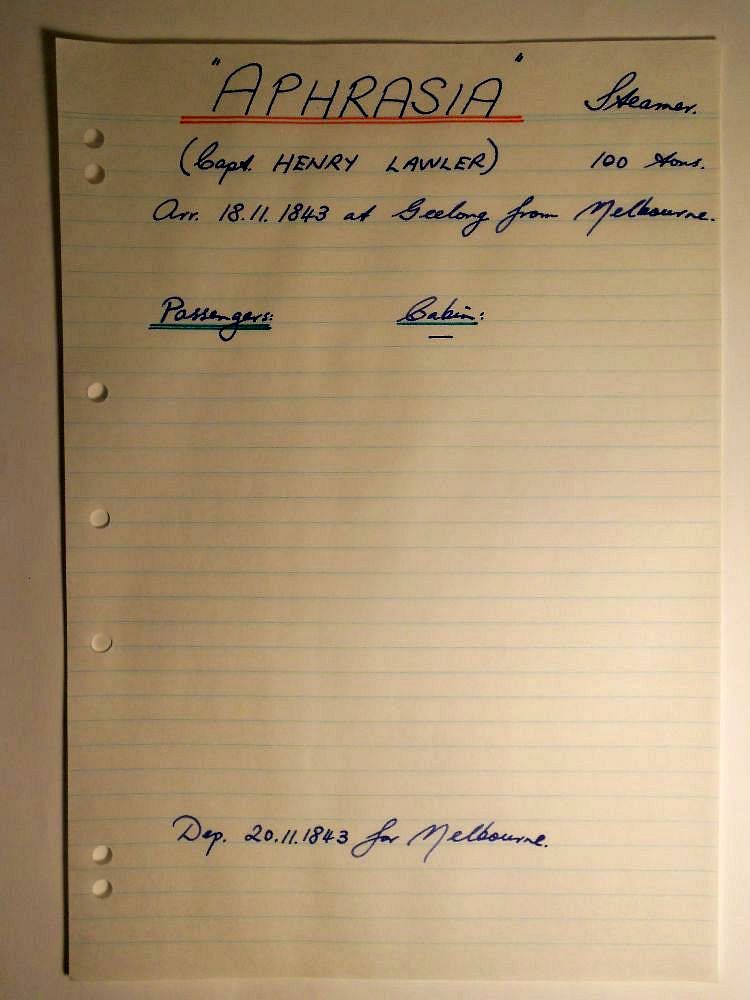 "APHRASIA" Steamer.
(Capt. HENRY LAWLER) 100 tons.
Arr. 18.11.1843 at Geelong from Melbourne.
Passengers: Cabin:
—
Dep. 20.11.1843 for Melbourne.